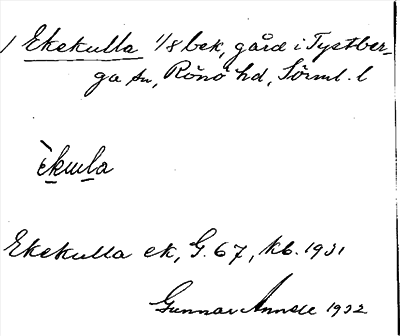 1 Ekekulla 1/8 bek, gård i Tystber-
ga sn, Rönö hd, Sörml. l
èkuła
Ekekulla ek, G. 67, kb. 1931
Gunnar 1932